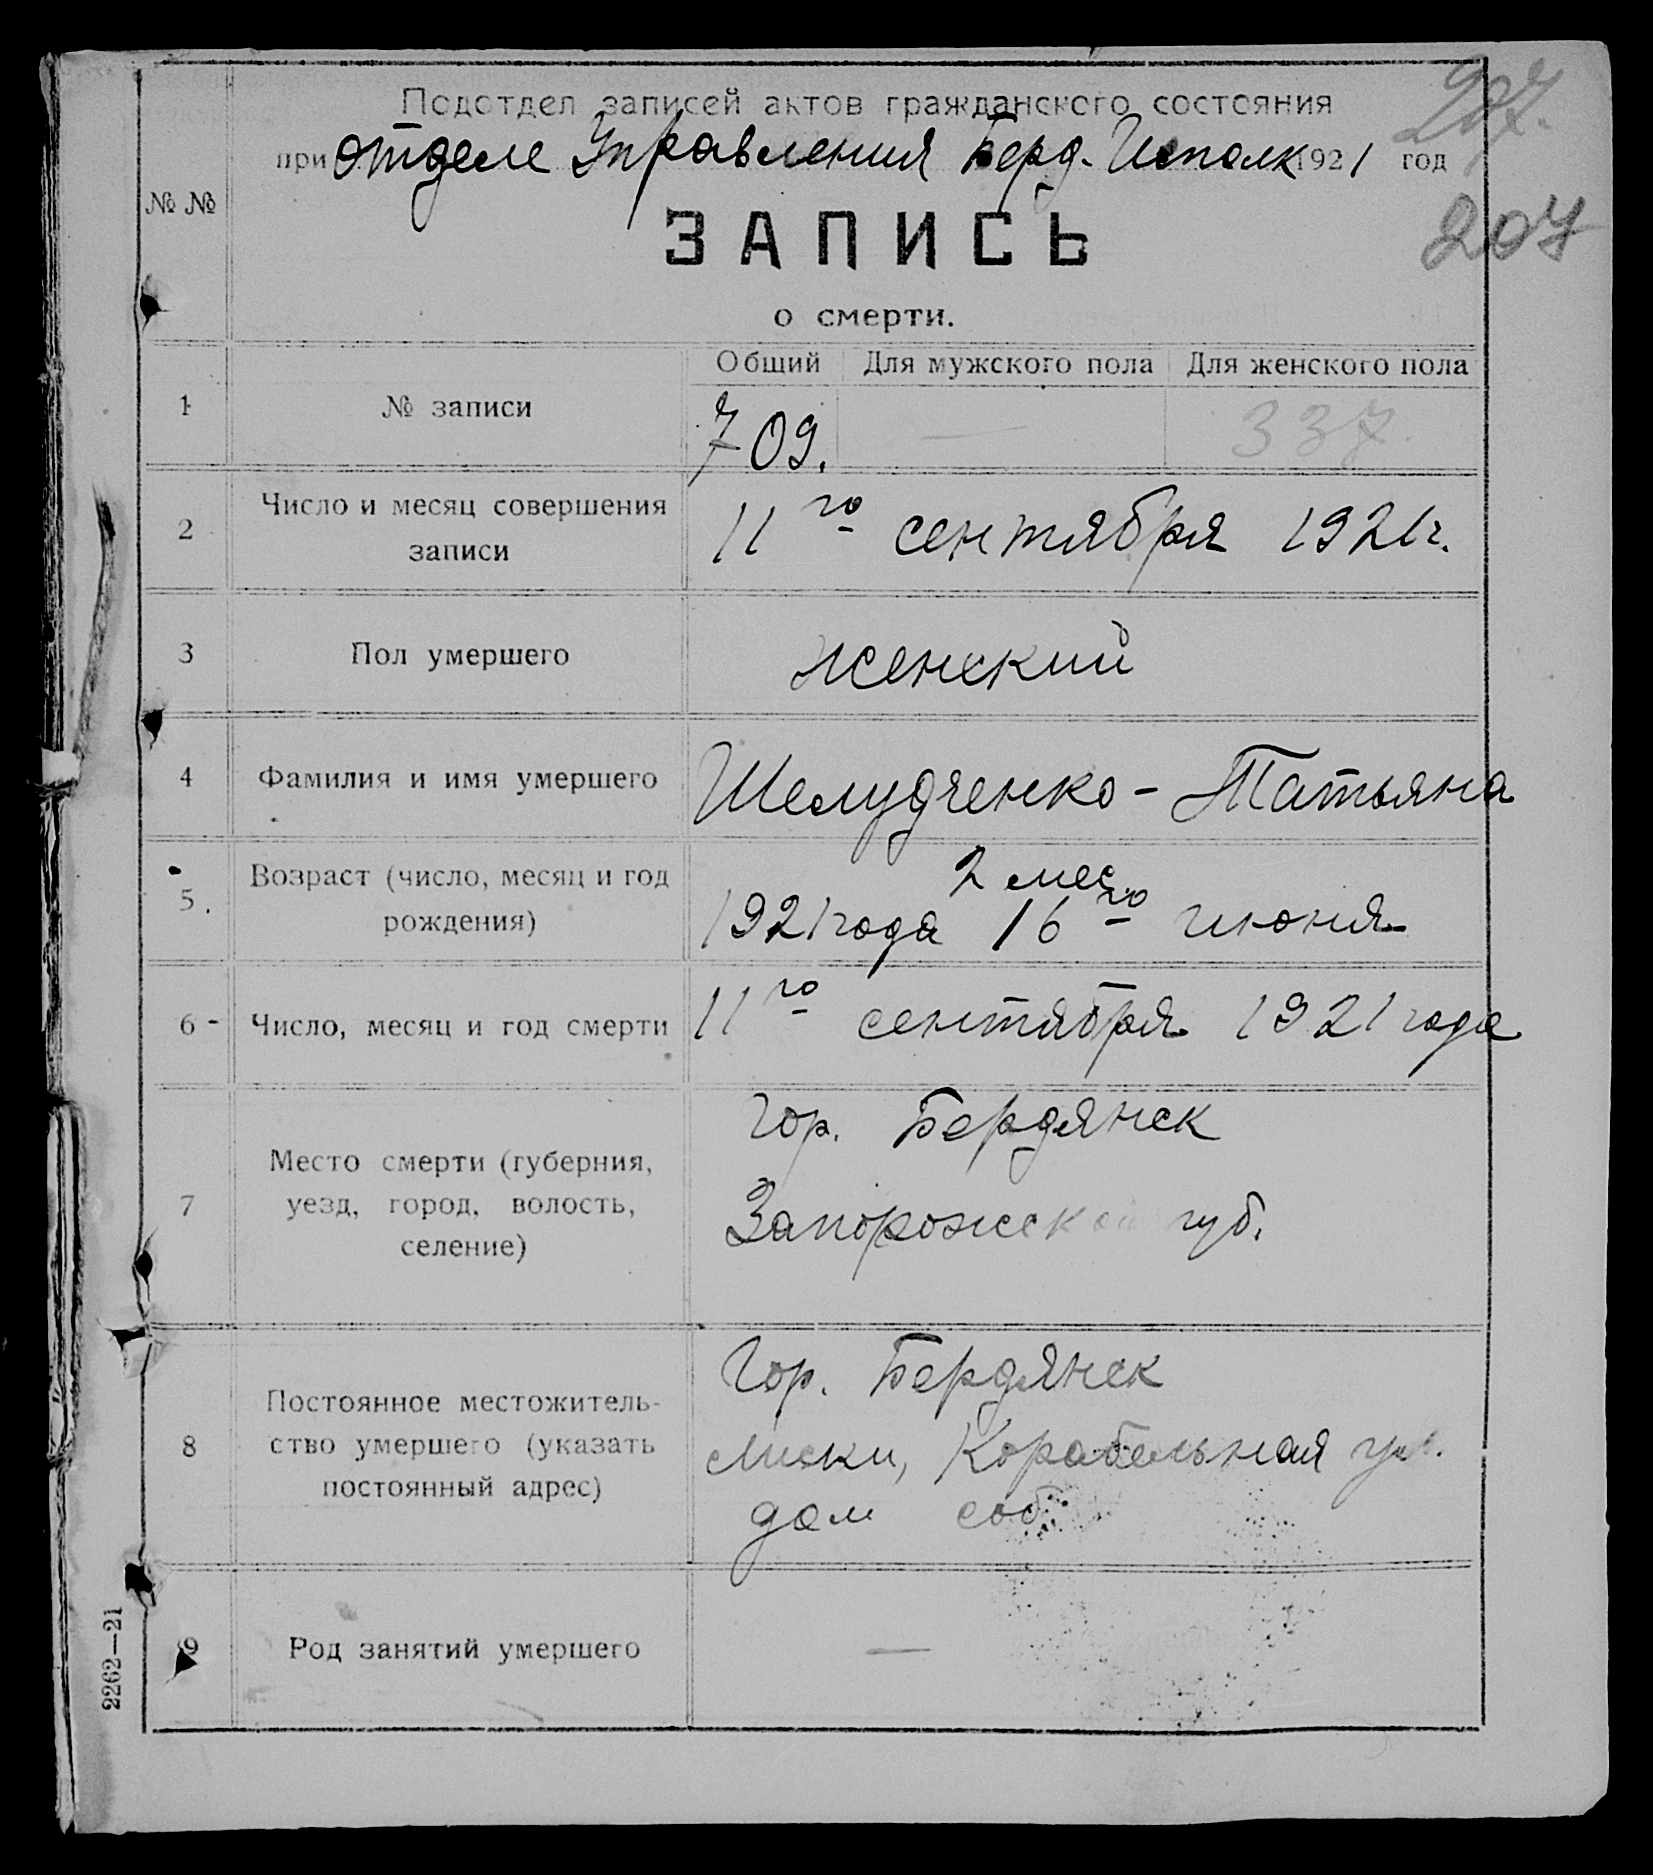 207.
Подотдел записей актов гражданского состояния
при отделе Управления Берд. Исполк 1921 год
207
№ №
ЗАПИСЬ
о смерти.
Общий Для мужского пола Для женского пола
1 № записи 709. — 337
2 Число и месяц совершения
записи
11го сентября 1921г.
3 Пол умершего женский
4 Фамилия и имя умершего Шелудченко - Татьяна
5. Возраст (число, месяц и год
рождения)
2 мес.
1921 года 16го июня
6 - Число, месяц и год смерти 11го сентября 1921 года
7 Место смерти (губерния,
уезд, город, волость,
селение)
Гор. Бердянск
Запорожской губ.
8 Постоянное местожитель-
ство умершего (указать
постоянный адрес)
Гор. Бердянск
Лиски, Корабельная ул.
дом соб.
9 Род занятий умершего —
2262—21